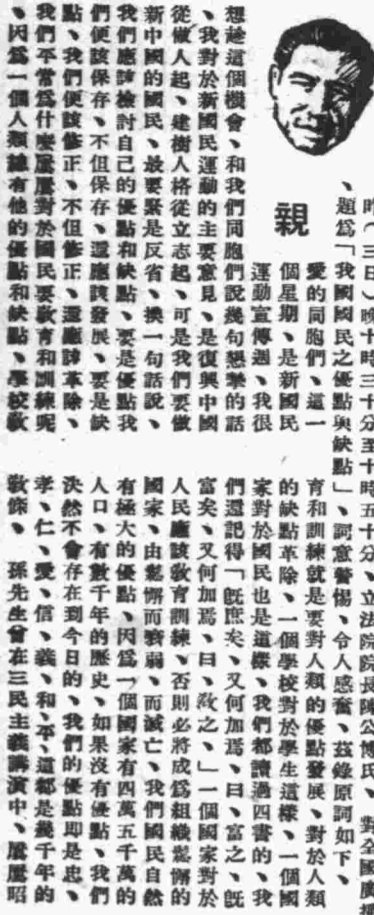 昨(三日)晚十時三十分至十時五十分、立法院院長陳公博氏、對全國廣播
、題爲「我國國民之優點與缺點」、詞意警惕、令人感奮、茲錄原詞如下、
親
愛的同胞們、這一
個星期、是新國民
運動宣傳週、我很
想趁這個機會、和我們同胞們說幾句懇摯的話
、我對於新國民運動的主要意見、是復興中國
從做人起、建樹人格從立志起、可是我們要做
新中國的國民、最要緊是反省、換一句話說、
我們應該檢討自己的優點和缺點、要是優點我
們便該保存、不但保存、還應該發展、要是缺
點、我們便該修正、不但修正、還應該革除、
我們平常爲什麼屢屢對於國民要敎育和訓練呢
、因爲一個人類誰有他的優點和缺點、學校敎
育和訓練就是要對人類的優點發展、對於人類
的缺點革除、一個學校對於學生這樣、一個國
家對於國民也是這樣、我們都讀過四書的、我
們還記得「旣庶矣、又何加焉、曰、富之、旣
富矣、又何加焉、曰、敎之、」一個國家對於
人民應該敎育訓練、否則必將成爲組織鬆懈的
國家、由鬆懈而衰弱、而滅亡、我們國民自然
有極大的優點、因爲一個國家有四萬五千萬的
人口、有數千年的歷史、如果沒有優點、我們
決然不會存在到今日的、我們的優點即是忠、
孝、仁、愛、信、義、和、平、這都是幾千年的
敎條、 孫先生曾在三民主義講演中、屢屢昭